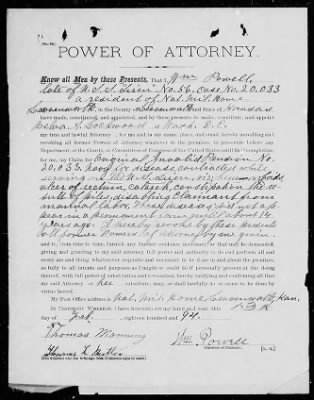 POWER OF ATTORNEY.
Know all Men by these Presents, That I Wm Powell,
late of U.S.S. No. 56, Case No. 20.033
a resident of Nat. Mil. Home
Leavenworth, in the County of Leavenworth and State of Kansas
have made, constituted, and appointed, and by these presents do make, constitute, and appoint
Belva A. Lockwood of Wash. D.C.
my true and lawful Attorney, for me and in my name,
revoking all former Powers of Attorney whatever in relation to the same, to prosecute before any
Department, or the Courts, or Committees of Congress of the United States until the completion,
for me, my Claim for Original Invalid Pension No.
20.033. Navy for disease contracted while
serving on the U.S.S. viz; hemorrhoids,
ulcer of rectum, constipation the re-
sult of piles disabling Claimant from
manual labor. These diseases did not ap-
pear in a permanent form until about 14
years ago. I hereby revoke by these presents
all former Powers of Attorney by me given
and to, from time to time, furnish any further evidence necessary or that may be demanded,
giving and granting to my said attorney full power and authority to do and perform all and
every act and thing whatsoever requisite and necessary to be done in and about the premises,
as fully to all intents and purposes as I might or could do if personally present at the doing
thereof, with full power of substitution and revocation, hereby ratifying and confirming all that
my said Attorney or her substitute may, or shall lawfully do or cause to be done by
virtue hereof.
My Post office address is Nat. Mil. Home Leavenworth, Kan.
In Testimony Whereof, I have hereunto set my hand and seal, this 13th
day of Feb. eighteen hundred and 94.
Thomas Manning
Wm Powell
[L.S.]